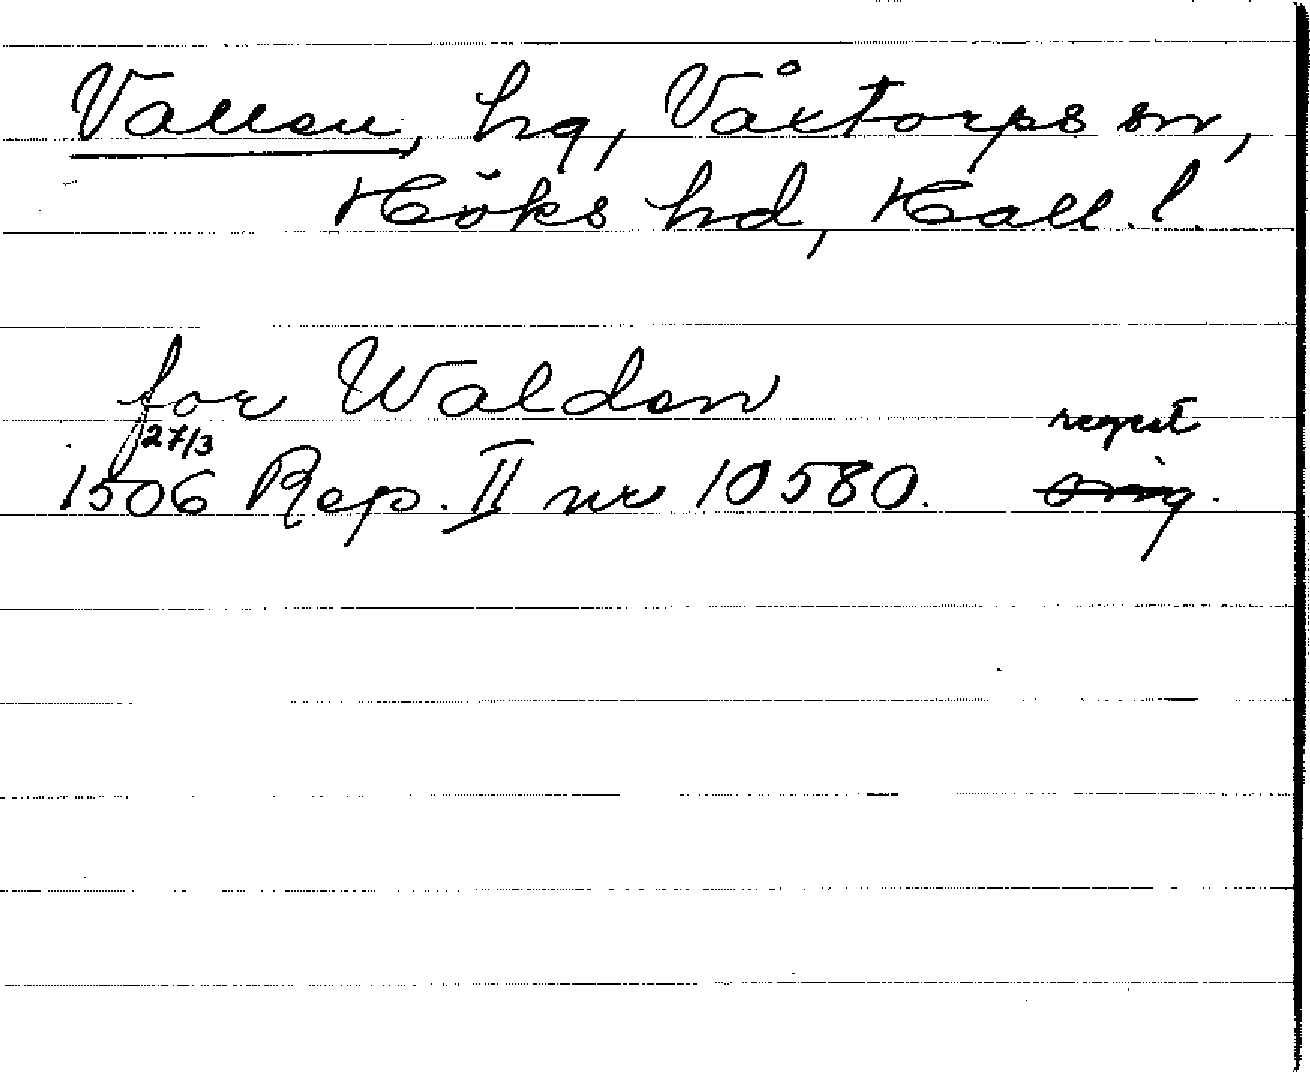 Vallen, hg, Våxtorps sn,
Höks hd, Hall. l.
for Walden
27/3 regest
1506 Rep. II nr 10580. orig.